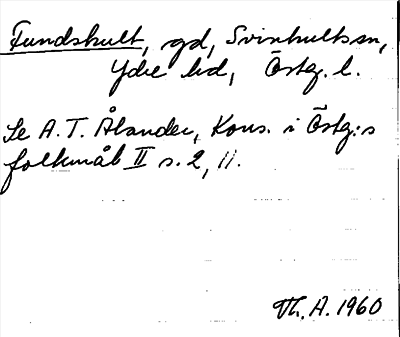 Fundshult, gd, Svinhultssn,
Ydre hd, Östg. l.
Se A. T. Ålander, Kons. i Östg:s
folkmål II s. 2, 11.
Th. A. 1960